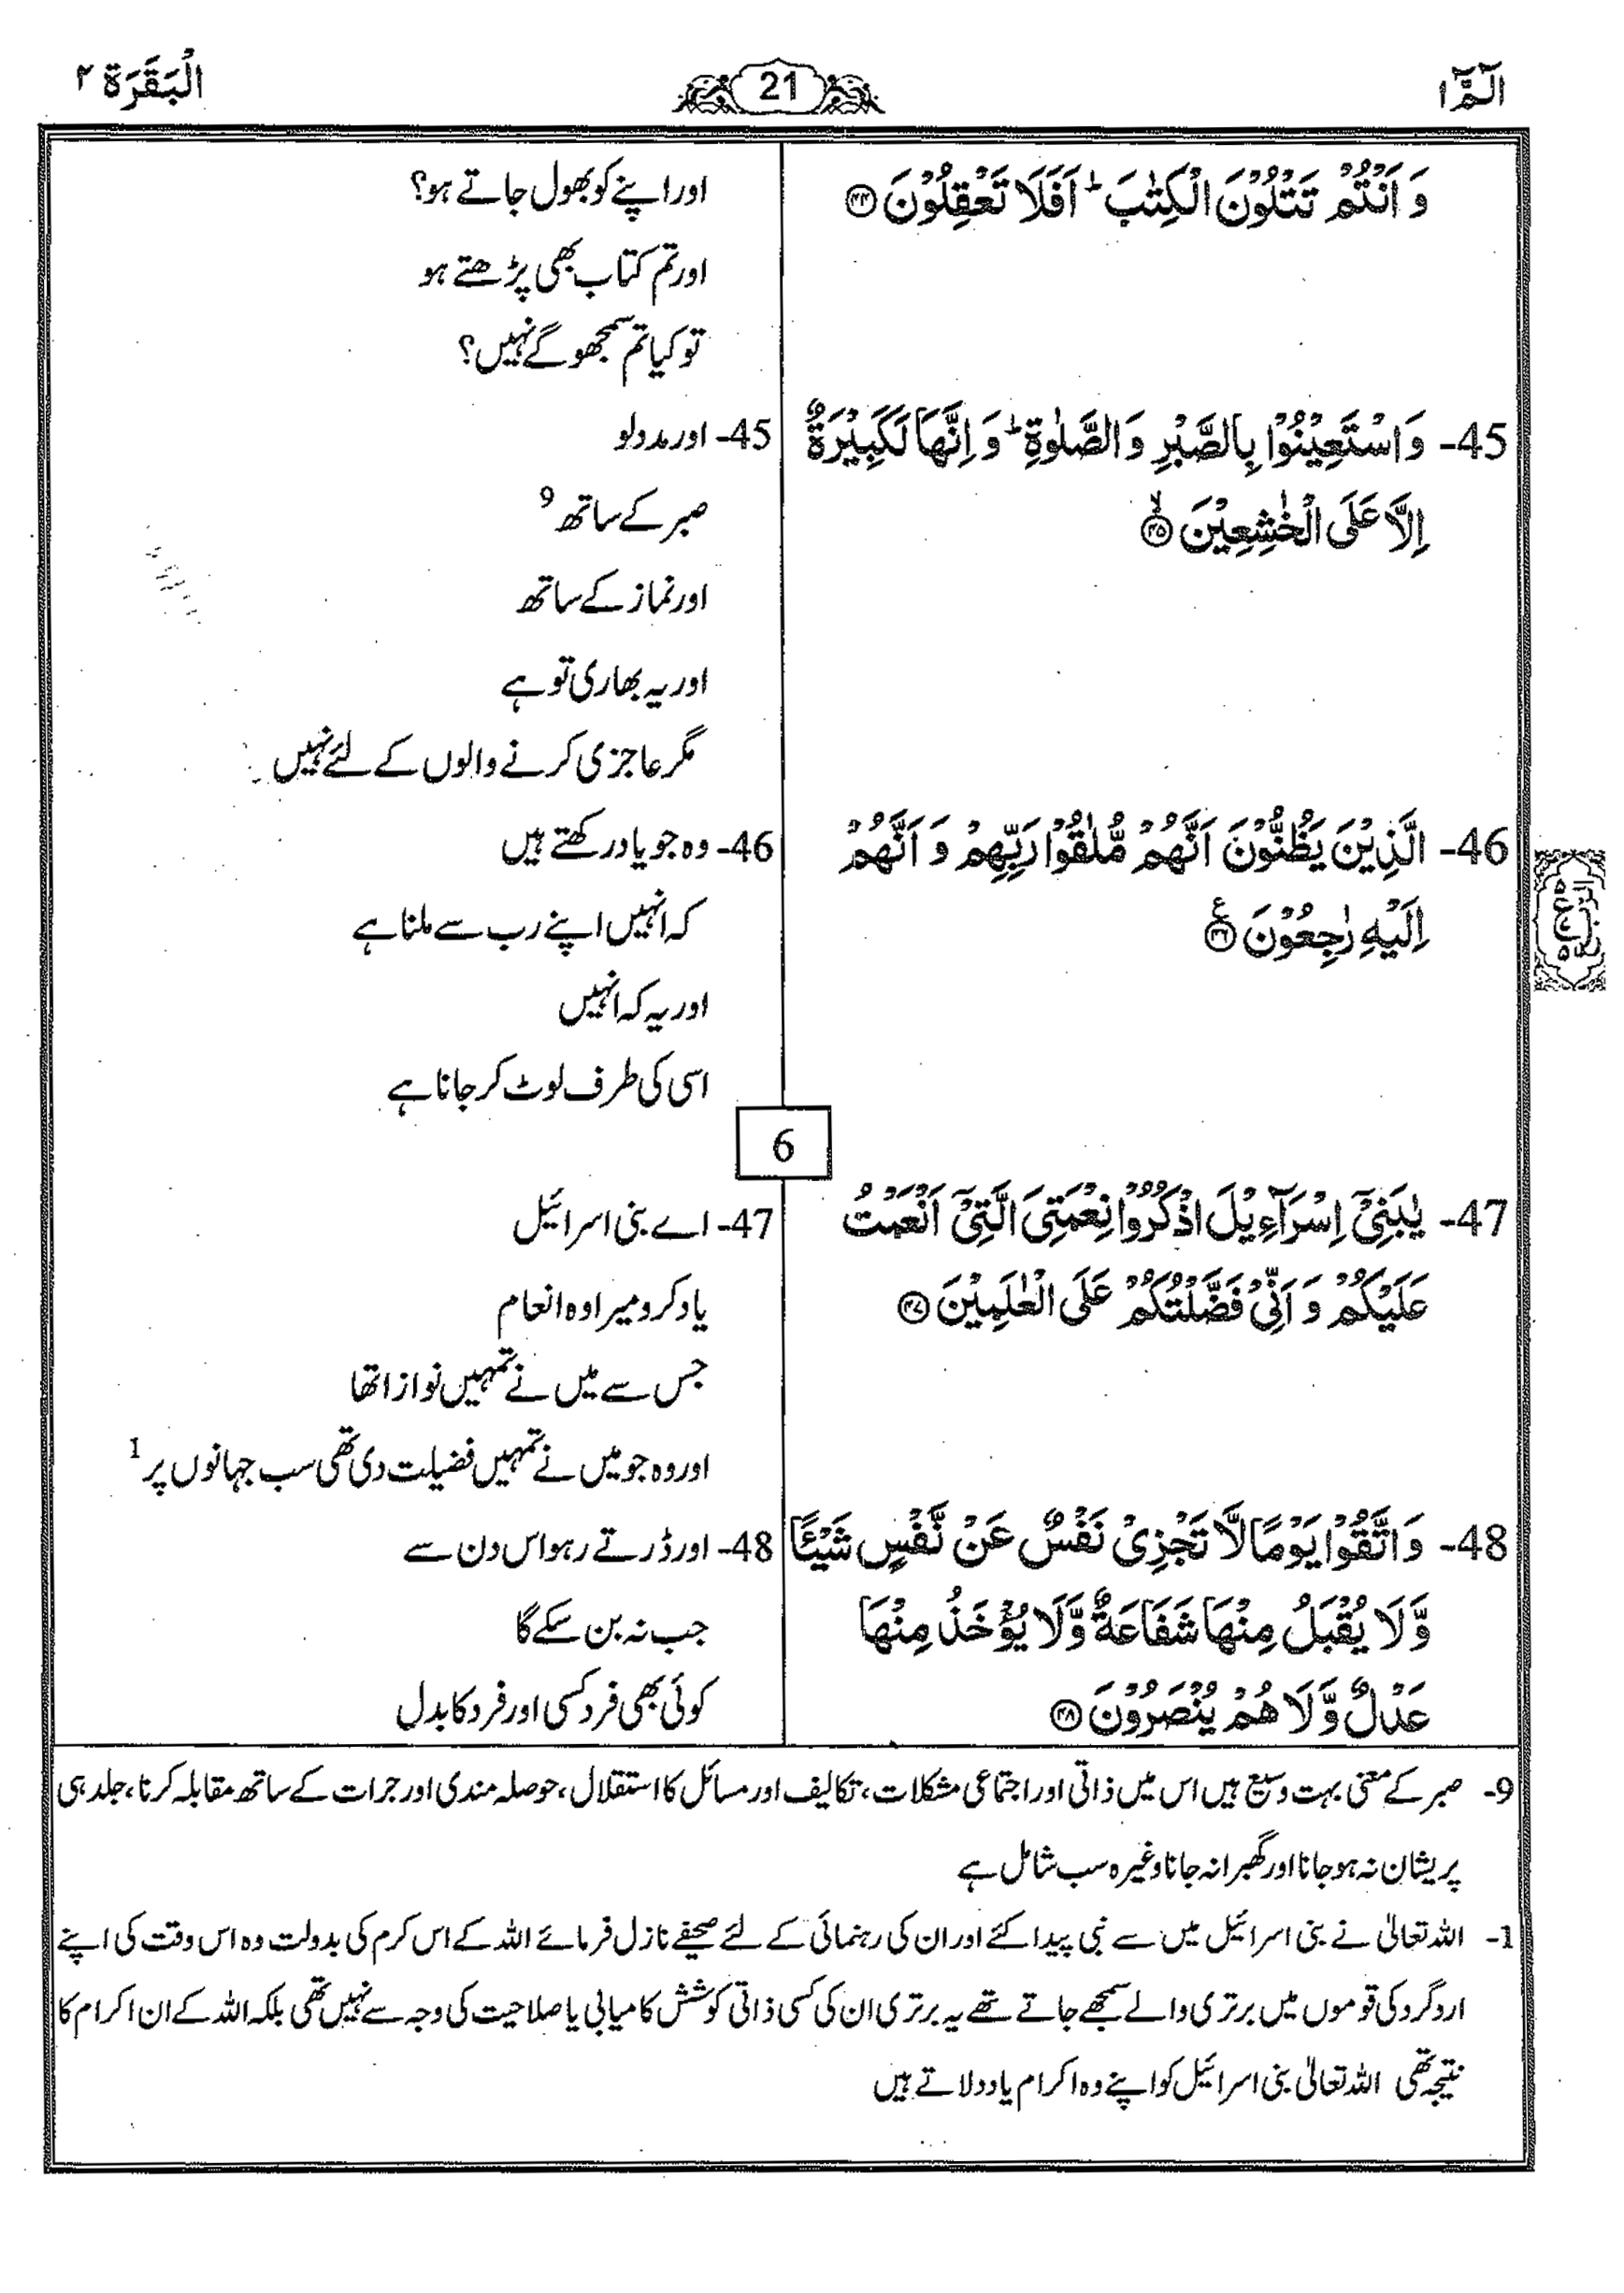 الٓمّٓ ۱
21
الْبَقَرَة ۲
وَ اَنْتُمْ تَتْلُوْنَ الْكِتٰبَ ؕ اَفَلَا تَعْقِلُوْنَ ﴿۴۴﴾
45- وَ اسْتَعِيْنُوْا بِالصَّبْرِ وَ الصَّلٰوةِ ؕ وَ اِنَّهَا لَكَبِيْرَةٌ
اِلَّا عَلَى الْخٰشِعِيْنَ ﴿۴۵﴾ ۙ
46- الَّذِيْنَ يَظُنُّوْنَ اَنَّهُمْ مُّلٰقُوْا رَبِّهِمْ وَ اَنَّهُمْ
اِلَيْهِ رٰجِعُوْنَ ﴿۴۶﴾ ع
47- يٰبَنِيْٓ اِسْرَآءِيْلَ اذْكُرُوْا نِعْمَتِيَ الَّتِيْٓ اَنْعَمْتُ
عَلَيْكُمْ وَ اَنِّيْ فَضَّلْتُكُمْ عَلَى الْعٰلَمِيْنَ ﴿۴۷﴾
48- وَ اتَّقُوْا يَوْمًا لَّا تَجْزِيْ نَفْسٌ عَنْ نَّفْسٍ شَيْـًٔا
وَّ لَا يُقْبَلُ مِنْهَا شَفَاعَةٌ وَّ لَا يُؤْخَذُ مِنْهَا
عَدْلٌ وَّ لَا هُمْ يُنْصَرُوْنَ ﴿۴۸﴾
اور اپنے کو بھول جاتے ہو؟
اور تم کتاب بھی پڑھتے ہو
تو کیا تم سمجھو گے نہیں؟
45- اور مدد لو
صبر کے ساتھ 9
اور نماز کے ساتھ
اور یہ بھاری تو ہے
مگر عاجزی کرنے والوں کے لئے نہیں
46- وہ جو یاد رکھتے ہیں
کہ انہیں اپنے رب سے ملنا ہے
اور یہ کہ انہیں
اسی کی طرف لوٹ کر جانا ہے
6
47- اے بنی اسرائیل
یاد کرو میرا وہ انعام
جس سے میں نے تمہیں نوازا تھا
اور وہ جو میں نے تمہیں فضیلت دی تھی سب جہانوں پر 1
48- اور ڈرتے رہو اس دن سے
جب نہ بن سکے گا
کوئی بھی فرد کسی اور فرد کا بدل
9- صبر کے معنی بہت وسیع ہیں اس میں ذاتی اور اجتماعی مشکلات، تکالیف اور مسائل کا استقلال، حوصلہ مندی اور جرات کے ساتھ مقابلہ کرنا، جلد ہی
پریشان نہ ہو جانا اور گھبرا نہ جانا وغیرہ سب شامل ہے
1- اللہ تعالیٰ نے بنی اسرائیل میں سے نبی پیدا کئے اور ان کی رہنمائی کے لئے صحیفے نازل فرمائے اللہ کے اس کرم کی بدولت وہ اس وقت کی اپنے
ارد گرد کی قوموں میں برتری والے سمجھے جاتے تھے یہ برتری ان کی کسی ذاتی کوشش کامیابی یا صلاحیت کی وجہ سے نہیں تھی بلکہ اللہ کے ان اکرام کا
نتیجہ تھی اللہ تعالیٰ بنی اسرائیل کو اپنے وہ اکرام یاد دلاتے ہیں